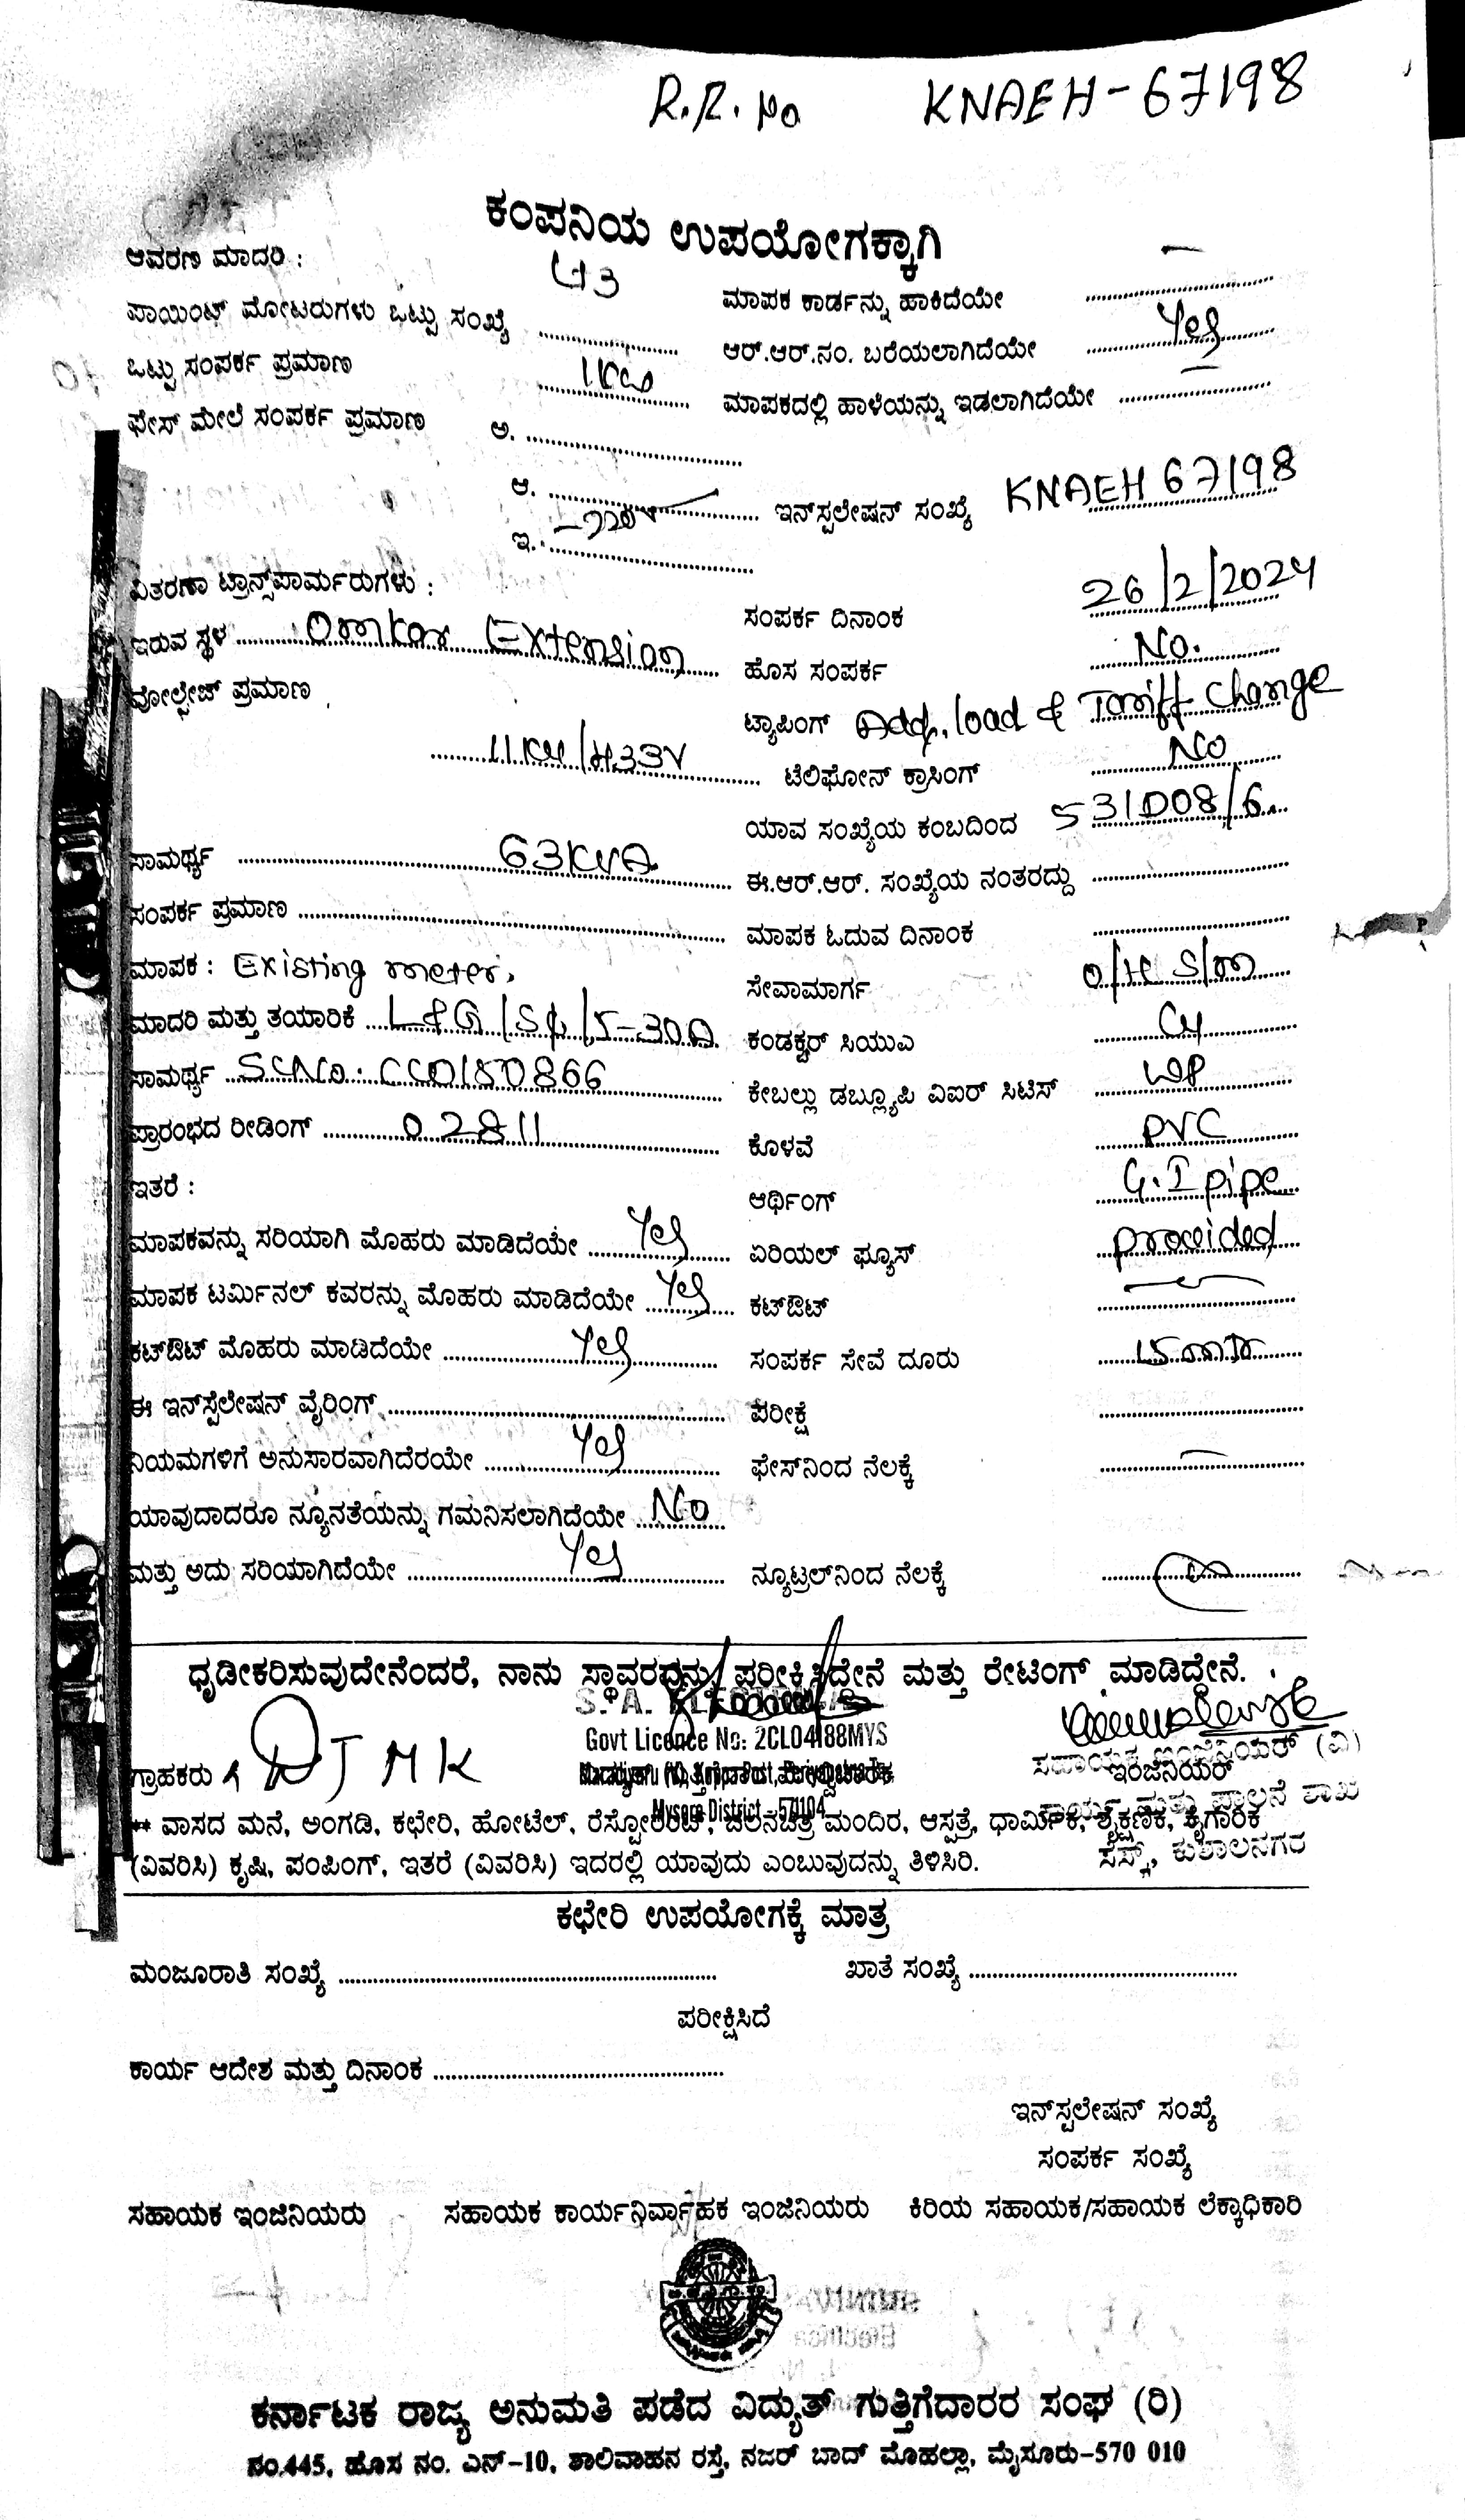 R.R. No KNAEH-67198
ಕಂಪನಿಯ ಉಪಯೋಗಕ್ಕಾಗಿ
ಆವರಣ ಮಾದರಿ :
ಮಾಪಕ ಕಾರ್ಡನ್ನು ಹಾಕಿದೆಯೇ —
ಪಾಯಿಂಟ್ ಮೋಟರುಗಳು ಒಟ್ಟು ಸಂಖ್ಯೆ
ಆರ್.ಆರ್.ನಂ. ಬರೆಯಲಾಗಿದೆಯೇ Yes
ಒಟ್ಟು ಸಂಪರ್ಕ ಪ್ರಮಾಣ 1KW
ಮಾಪಕದಲ್ಲಿ ಹಾಳೆಯನ್ನು ಇಡಲಾಗಿದೆಯೇ —
ಫೇಸ್ ಮೇಲೆ ಸಂಪರ್ಕ ಪ್ರಮಾಣ ಅ.
ಆ.
ಇನ್‌ಸ್ಪಲೇಷನ್ ಸಂಖ್ಯೆ KNAEH 67198
ಇ.
ವಿತರಣಾ ಟ್ರಾನ್ಸ್‌ಪಾರ್ಮರುಗಳು :
ಸಂಪರ್ಕ ದಿನಾಂಕ 26/2/2024
ಇರುವ ಸ್ಥಳ Omkar Extension
ಹೊಸ ಸಂಪರ್ಕ No.
ವೋಲ್ಟೇಜ್ ಪ್ರಮಾಣ
ಟ್ಯಾಪಿಂಗ್ Addl. load & Tariff Change
11KV/433V
ಟೆಲಿಫೋನ್ ಕ್ರಾಸಿಂಗ್ NO
ಯಾವ ಸಂಖ್ಯೆಯ ಕಂಬದಿಂದ 531D08/6
ಸಾಮರ್ಥ್ಯ 63KVA
ಈ.ಆರ್.ಆರ್. ಸಂಖ್ಯೆಯ ನಂತರದ್ದು
ಸಂಪರ್ಕ ಪ್ರಮಾಣ
ಮಾಪಕ ಓದುವ ದಿನಾಂಕ
ಮಾಪಕ : Existing meter.
ಸೇವಾಮಾರ್ಗ O/H S/M
ಮಾದರಿ ಮತ್ತು ತಯಾರಿಕೆ L&G/Sφ/5-30A
ಕಂಡಕ್ಟರ್ ಸಿಯುಎ CU
ಸಾಮರ್ಥ್ಯ
ಕೇಬಲ್ಲು ಡಬ್ಲ್ಯೂಪಿ ವಿಐರ್ ಸಿಟಿಸ್ WP
ಪ್ರಾರಂಭದ ರೀಡಿಂಗ್ 02811
ಕೊಳವೆ PVC
ಇತರೆ :
ಆರ್ಥಿಂಗ್ G.I pipe
ಮಾಪಕವನ್ನು ಸರಿಯಾಗಿ ಮೊಹರು ಮಾಡಿದೆಯೇ Yes
ಏರಿಯಲ್ ಫ್ಯೂಸ್ provided
ಮಾಪಕ ಟರ್ಮಿನಲ್ ಕವರನ್ನು ಮೊಹರು ಮಾಡಿದೆಯೇ Yes
ಕಟ್‌ಔಟ್ —
ಕಟ್‌ಔಟ್ ಮೊಹರು ಮಾಡಿದೆಯೇ Yes
ಸಂಪರ್ಕ ಸೇವೆ ದೂರು
ಈ ಇನ್‌ಸ್ಪೆಲೇಷನ್ ವೈರಿಂಗ್
ಪರೀಕ್ಷೆ
ನಿಯಮಗಳಿಗೆ ಅನುಸಾರವಾಗಿದೆರಯೇ Yes
ಫೇಸ್‌ನಿಂದ ನೆಲಕ್ಕೆ —
ಯಾವುದಾದರೂ ನ್ಯೂನತೆಯನ್ನು ಗಮನಿಸಲಾಗಿದೆಯೇ No
ಮತ್ತು ಅದು ಸರಿಯಾಗಿದೆಯೇ Yes
ನ್ಯೂಟ್ರಲ್‌ನಿಂದ ನೆಲಕ್ಕೆ
ಧೃಡೀಕರಿಸುವುದೇನೆಂದರೆ, ನಾನು ಸ್ಥಾವರವನ್ನು ಪರೀಕ್ಷಿಸಿದ್ದೇನೆ ಮತ್ತು ರೇಟಿಂಗ್ ಮಾಡಿದ್ದೇನೆ.
S. A.
Govt Licence No: 2CL04188MYS
ಸಹಾಯಕ ಇಂಜಿನಿಯರ್ (ವಿ)
ಗ್ರಾಹಕರು
ಇಂಜಿನಿಯರ್
Mysore District - 571104
ಕಾರ್ಯ ಮತ್ತು ಪಾಲನೆ ಶಾಖೆ
** ವಾಸದ ಮನೆ, ಅಂಗಡಿ, ಕಛೇರಿ, ಹೋಟೆಲ್, ರೆಸ್ಟೋರೆಂಟ್, ಚಲನಚಿತ್ರ ಮಂದಿರ, ಆಸ್ಪತ್ರೆ, ಧಾರ್ಮಿಕ, ಶೈಕ್ಷಣಿಕ, ಕೈಗಾರಿಕ
(ವಿವರಿಸಿ) ಕೃಷಿ, ಪಂಪಿಂಗ್, ಇತರೆ (ವಿವರಿಸಿ) ಇದರಲ್ಲಿ ಯಾವುದು ಎಂಬುವುದನ್ನು ತಿಳಿಸಿರಿ.
ಕುಶಾಲನಗರ
ಕಛೇರಿ ಉಪಯೋಗಕ್ಕೆ ಮಾತ್ರ
ಮಂಜೂರಾತಿ ಸಂಖ್ಯೆ
ಖಾತೆ ಸಂಖ್ಯೆ
ಪರೀಕ್ಷಿಸಿದೆ
ಕಾರ್ಯ ಆದೇಶ ಮತ್ತು ದಿನಾಂಕ
ಇನ್‌ಸ್ಟಲೇಷನ್ ಸಂಖ್ಯೆ
ಸಂಪರ್ಕ ಸಂಖ್ಯೆ
ಸಹಾಯಕ ಇಂಜಿನಿಯರು ಸಹಾಯಕ ಕಾರ್ಯನಿರ್ವಾಹಕ ಇಂಜಿನಿಯರು ಕಿರಿಯ ಸಹಾಯಕ/ಸಹಾಯಕ ಲೆಕ್ಕಾಧಿಕಾರಿ
ಕರ್ನಾಟಕ ರಾಜ್ಯ ಅನುಮತಿ ಪಡೆದ ವಿದ್ಯುತ್ ಗುತ್ತಿಗೆದಾರರ ಸಂಘ (ರಿ)
ನಂ.445, ಹೊಸ ನಂ. ಎನ್-10, ಶಾಲಿವಾಹನ ರಸ್ತೆ, ನಜರ್ ಬಾದ್ ಮೊಹಲ್ಲಾ, ಮೈಸೂರು-570 010